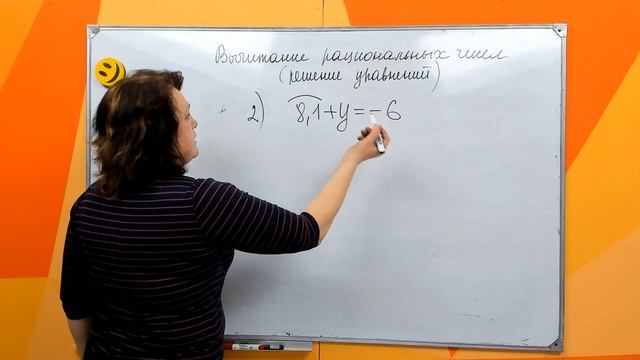 Вычитание рациональных чисел
(решение уравнений)
2) 8,1+y=-6